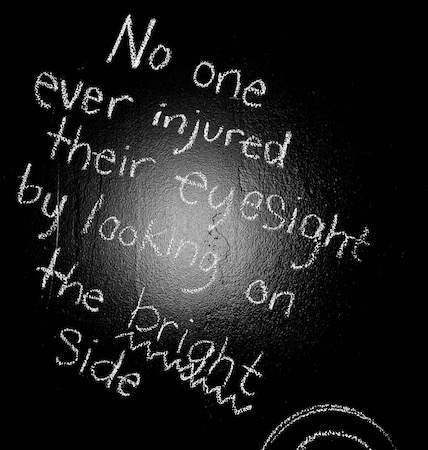 No one
ever injured
their eyesight
by looking on
the bright
side